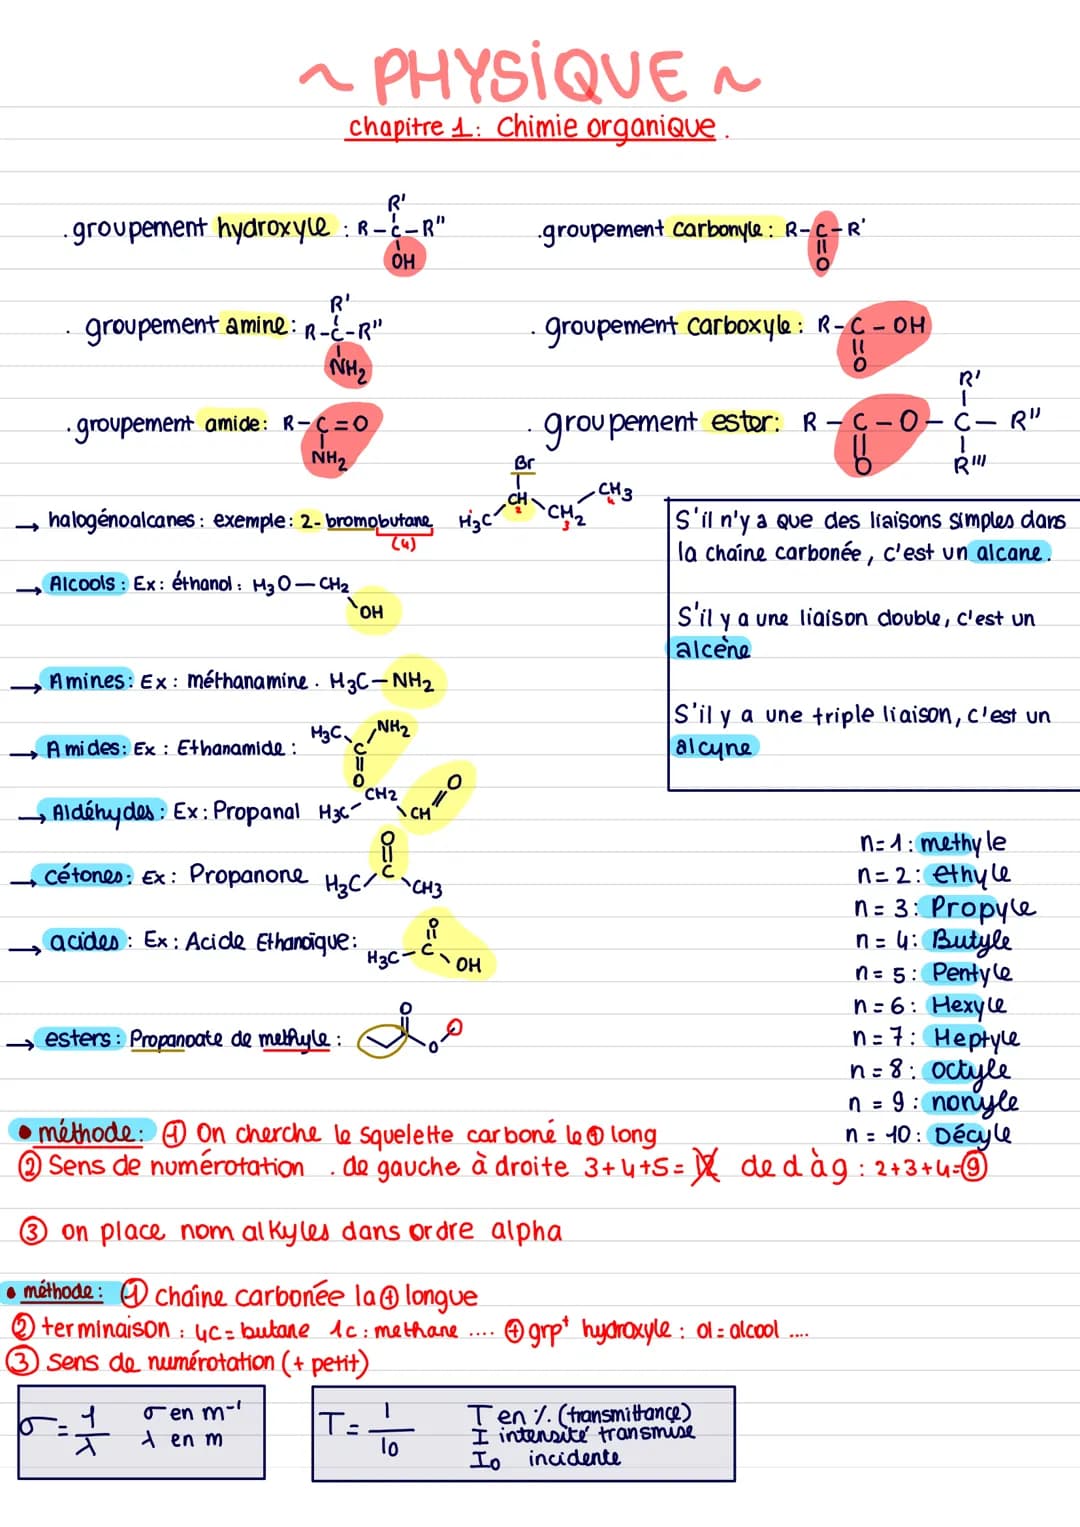 ~ PHYSIQUE ~
chapitre 1: Chimie organique.
.groupement hydroxyle : R-C-R"
R'
OH
.groupement carbonyle : R-C-R'
O
. groupement amine: R-C-R"
R'
NH2
. groupement carboxyle: R-C-OH
O
.groupement amide: R-C=O
NH2
. groupement ester: R-C-O-C-R"
O
R'
R'''
→ halogénoalcanes: exemple: 2-bromobutane H3C CH CH2 CH3
Br
2 3 4
(4)
→ Alcools: Ex: éthanol: H3O-CH2
OH
→ Amines: Ex: méthanamine. H3C-NH2
→ Amides: Ex: Ethanamide:
H3C C NH2
O
→ Aldéhydes: Ex: Propanal H3C CH2 CH O
→ cétones: Ex: Propanone H3C C CH3
O
→ acides: Ex: Acide Ethanoïque: H3C-C OH
O
→ esters: Propanoate de methyle:
O
O
S'il n'y a que des liaisons simples dans
la chaîne carbonée, c'est un alcane.
S'il y a une liaison double, c'est un
alcène
S'il y a une triple liaison, c'est un
alcyne
n=1: methyle
n=2: ethyle
n=3: Propyle
n=4: Butyle
n=5: Pentyle
n=6: Hexyle
n=7: Heptyle
n=8: octyle
n=9: nonyle
n=10: Décyle
• méthode: ① On cherche le squelette carboné le ⊕ long
② Sens de numérotation . de gauche à droite 3+4+5=12 de d à g: 2+3+4=9
③ on place nom alkyles dans ordre alpha
• méthode: ① chaîne carbonée la ⊕ longue
② terminaison: 4C=butane 1c: methane .... ⊕ grpt hydroxyle: ol=alcool ....
③ Sens de numérotation (+ petit)
σ=1/λ
σ en m-1
λ en m
T=I/Io
T en %. (transmittance)
I intensité transmise
Io incidente